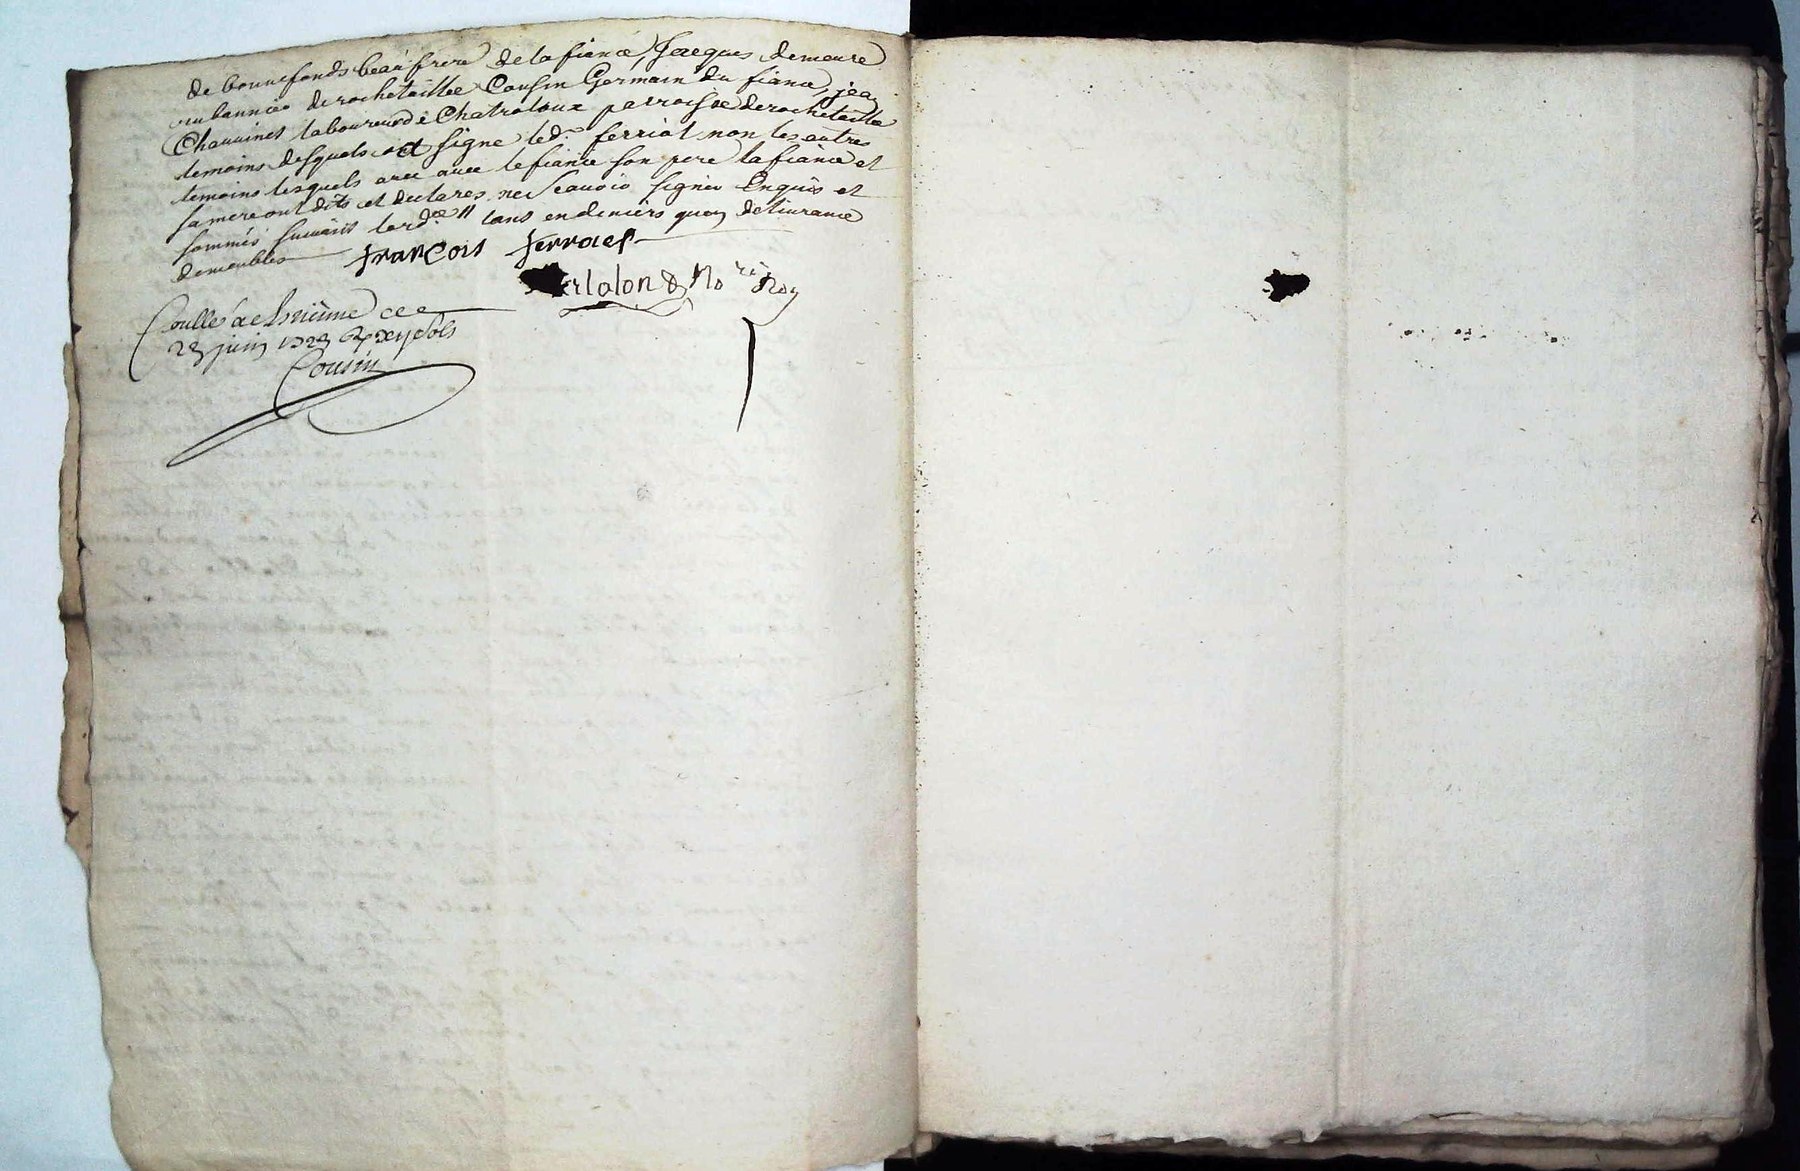 de bonnefonds beaufrere de la fiancé, Jacques demeure
au banniée de rochetaillée Cousin Germain du fiancé, jean
Chauvines laboureur de Chatraloux parroisse de rochetaillée
temoins desquels a signe led. ferriol non les autres
temoins lesquels avec le fiance son pere la fiance et
sa mere ont dits et declares ne scavoir signer Enquis et
sommés suivans lord.ce 11 en deniers quen delivrance
demeubles
françois ferriol
No.re Roy
23 juin 1723 sols
Cousin